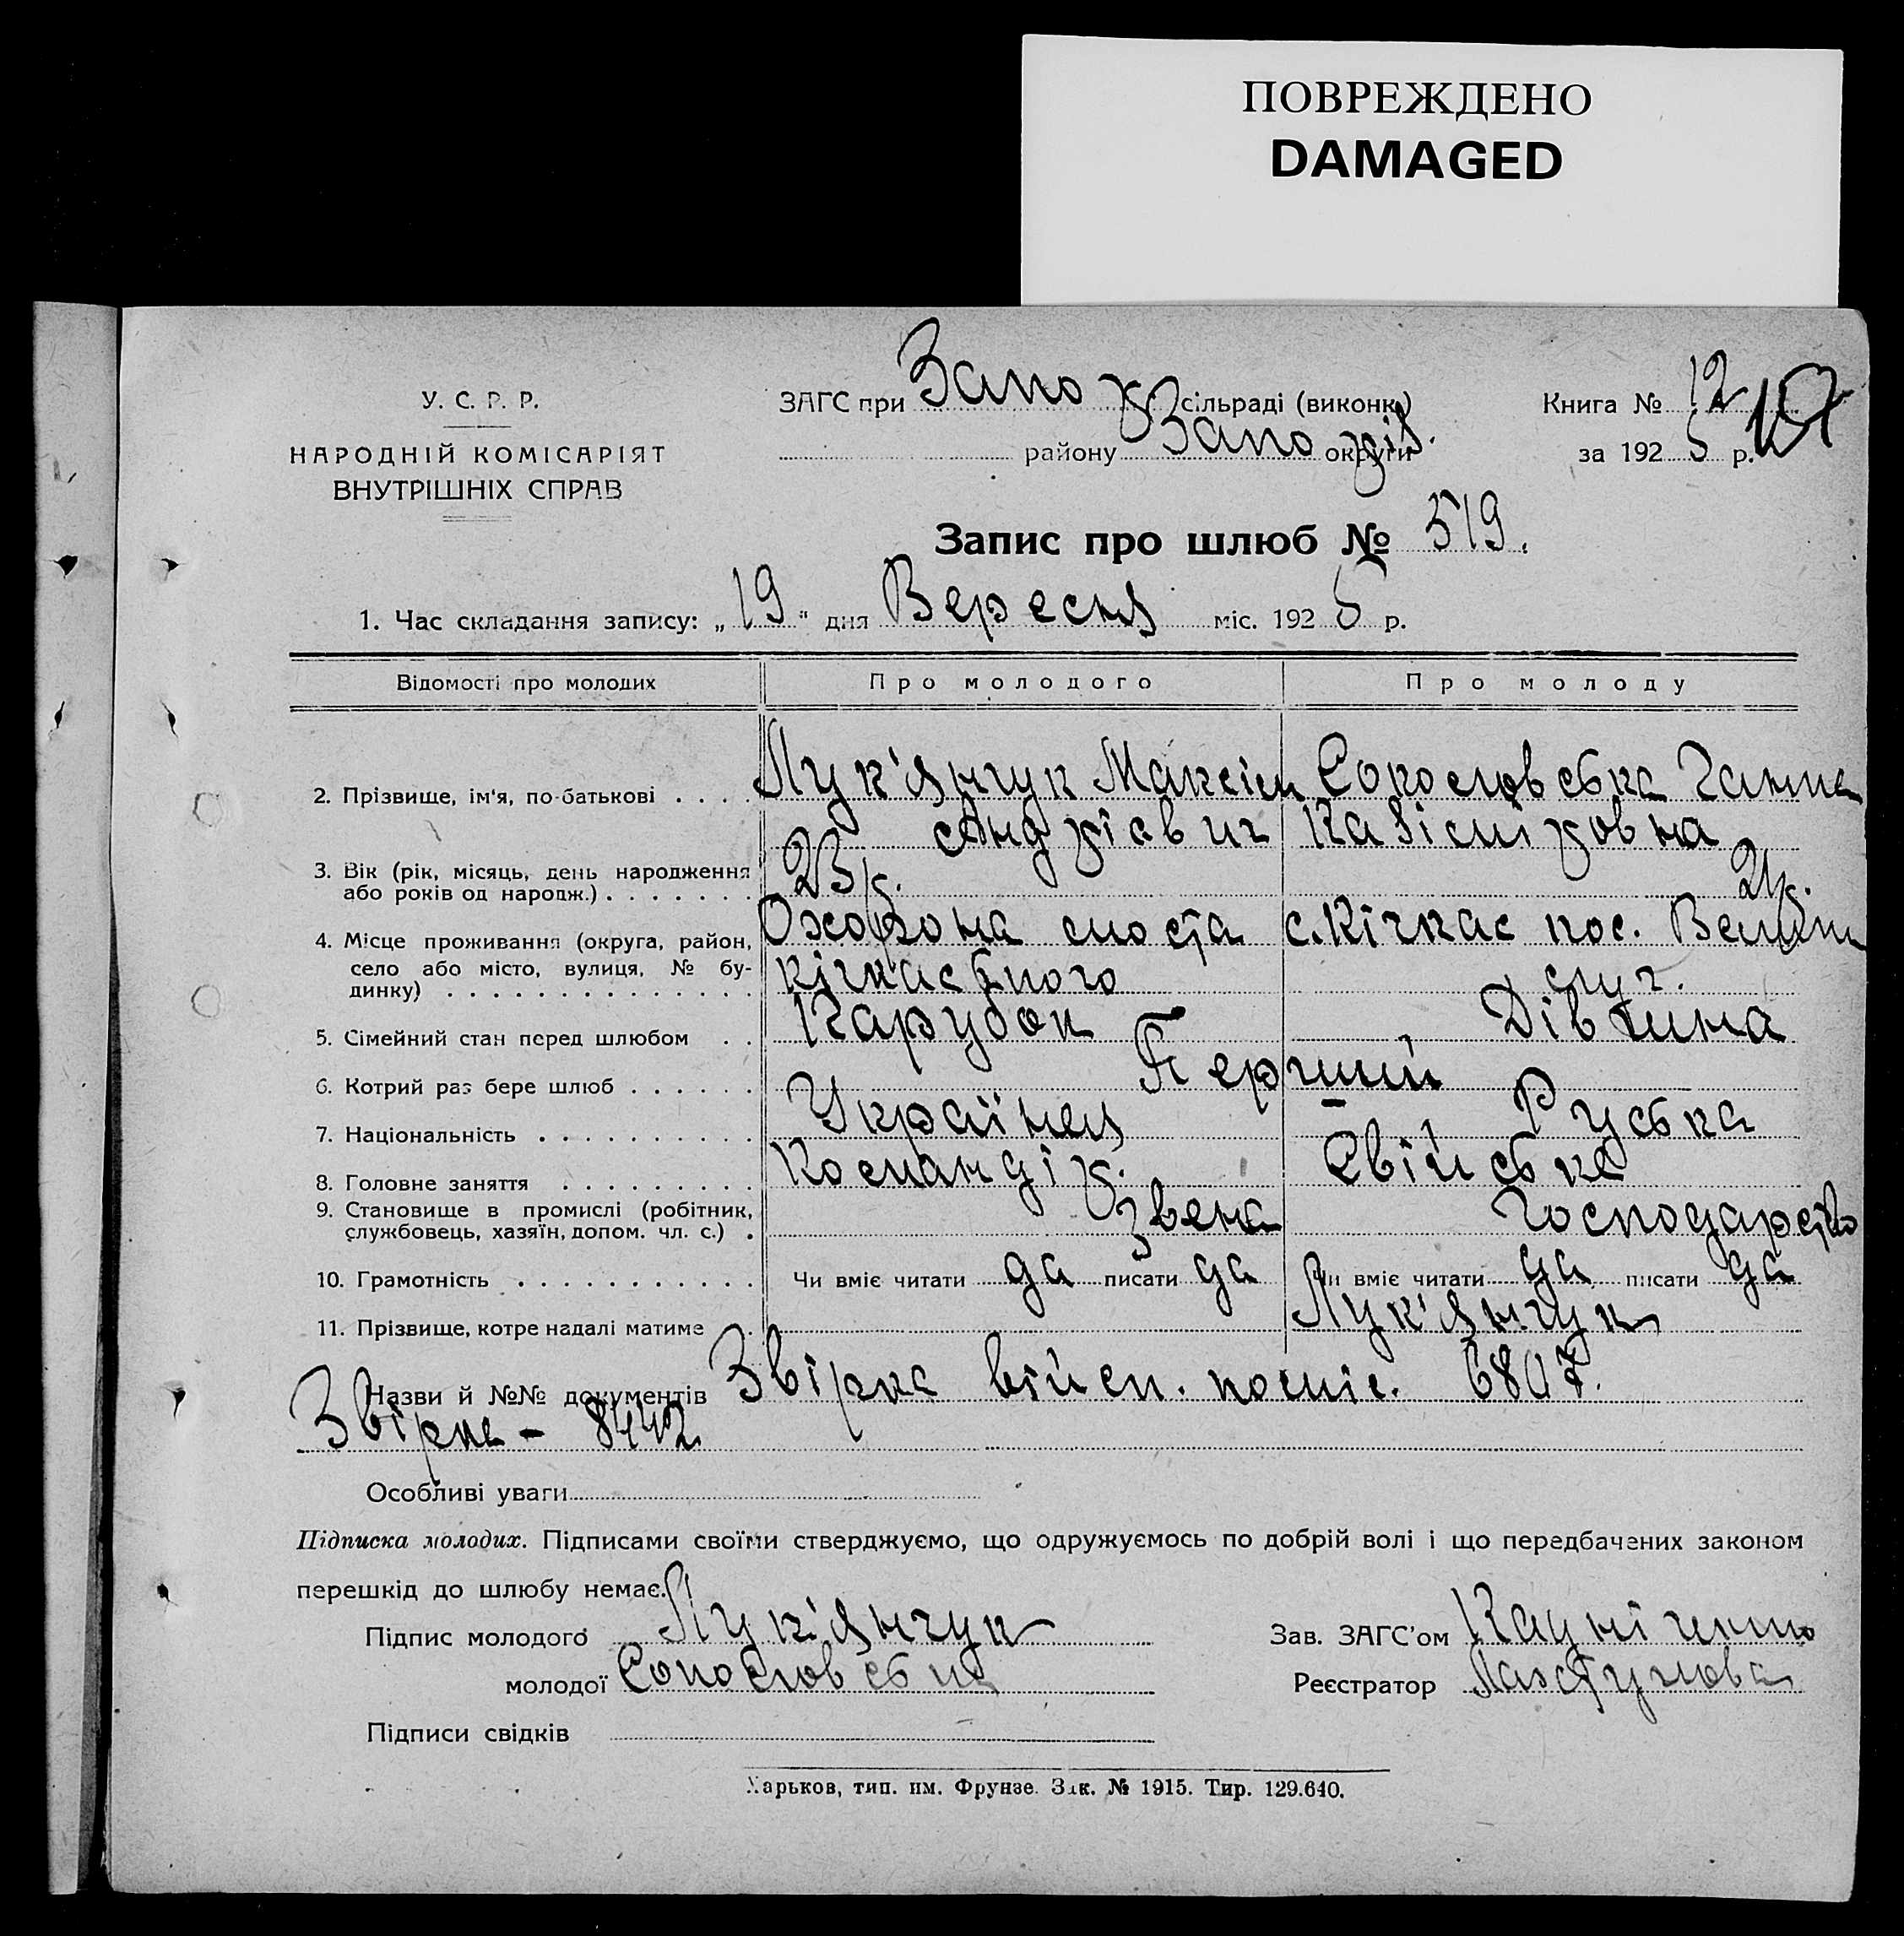 ПОВРЕЖДЕНО
DAMAGED
У. С. Р. Р.
НАРОДНІЙ КОМІСАРІЯТ
ВНУТРІШНІХ СПРАВ
ЗАГС при Запо сільраді (виконк.)
району Запо округи
Книга № 12
за 1925 р.
157
Запис про шлюб № 519.
1. Час складання запису: „19" дня Вересня міс. 1925 р.
Відомості про молодих Про молодого Про молоду
2. Прізвище, ім'я, по-батькові . . . . Лук'янчук Максім Ганна
Андрієвич Казіміровна
3. Вік (рік, місяць, день народження
або років од народж.) . . . . . . . 23 р. 21 р.
4. Місце проживання (округа, район, Охорона моста с. Кічкас пос.
село або місто, вулиця, № бу-
динку) . . . . . . . . . . . . . . кічкаського
5. Сімейний стан перед шлюбом . . Парубок Дівчина
6. Котрий раз бере шлюб . . . . . . Перший
7. Національність . . . . . . . . . . Українец Руська
8. Головне заняття . . . . . . . . . Командір. Свійське
9. Становище в промислі (робітник, звена господарство
службовець, хазяїн, допом. чл. с.) .
10. Грамотність . . . . . . . . . . . Чи вміє читати да писати да Чи вміє читати да писати да
11. Прізвище, котре надалі матиме . Лук'янчук
Назви й №№ документів Звірка війск. 6807.
Звірка – 8442
Особливі уваги
Підписка молодих. Підписами своїми стверджуємо, що одружуємось по добрій волі і що передбачених законом
перешкід до шлюбу немає.
Підпис молодого Лук'янчук Зав. ЗАГС'ом
молодої Реєстратор
Підписи свідків
Харьков, тип. им. Фрунзе. Зак. № 1915. Тир. 129.640.